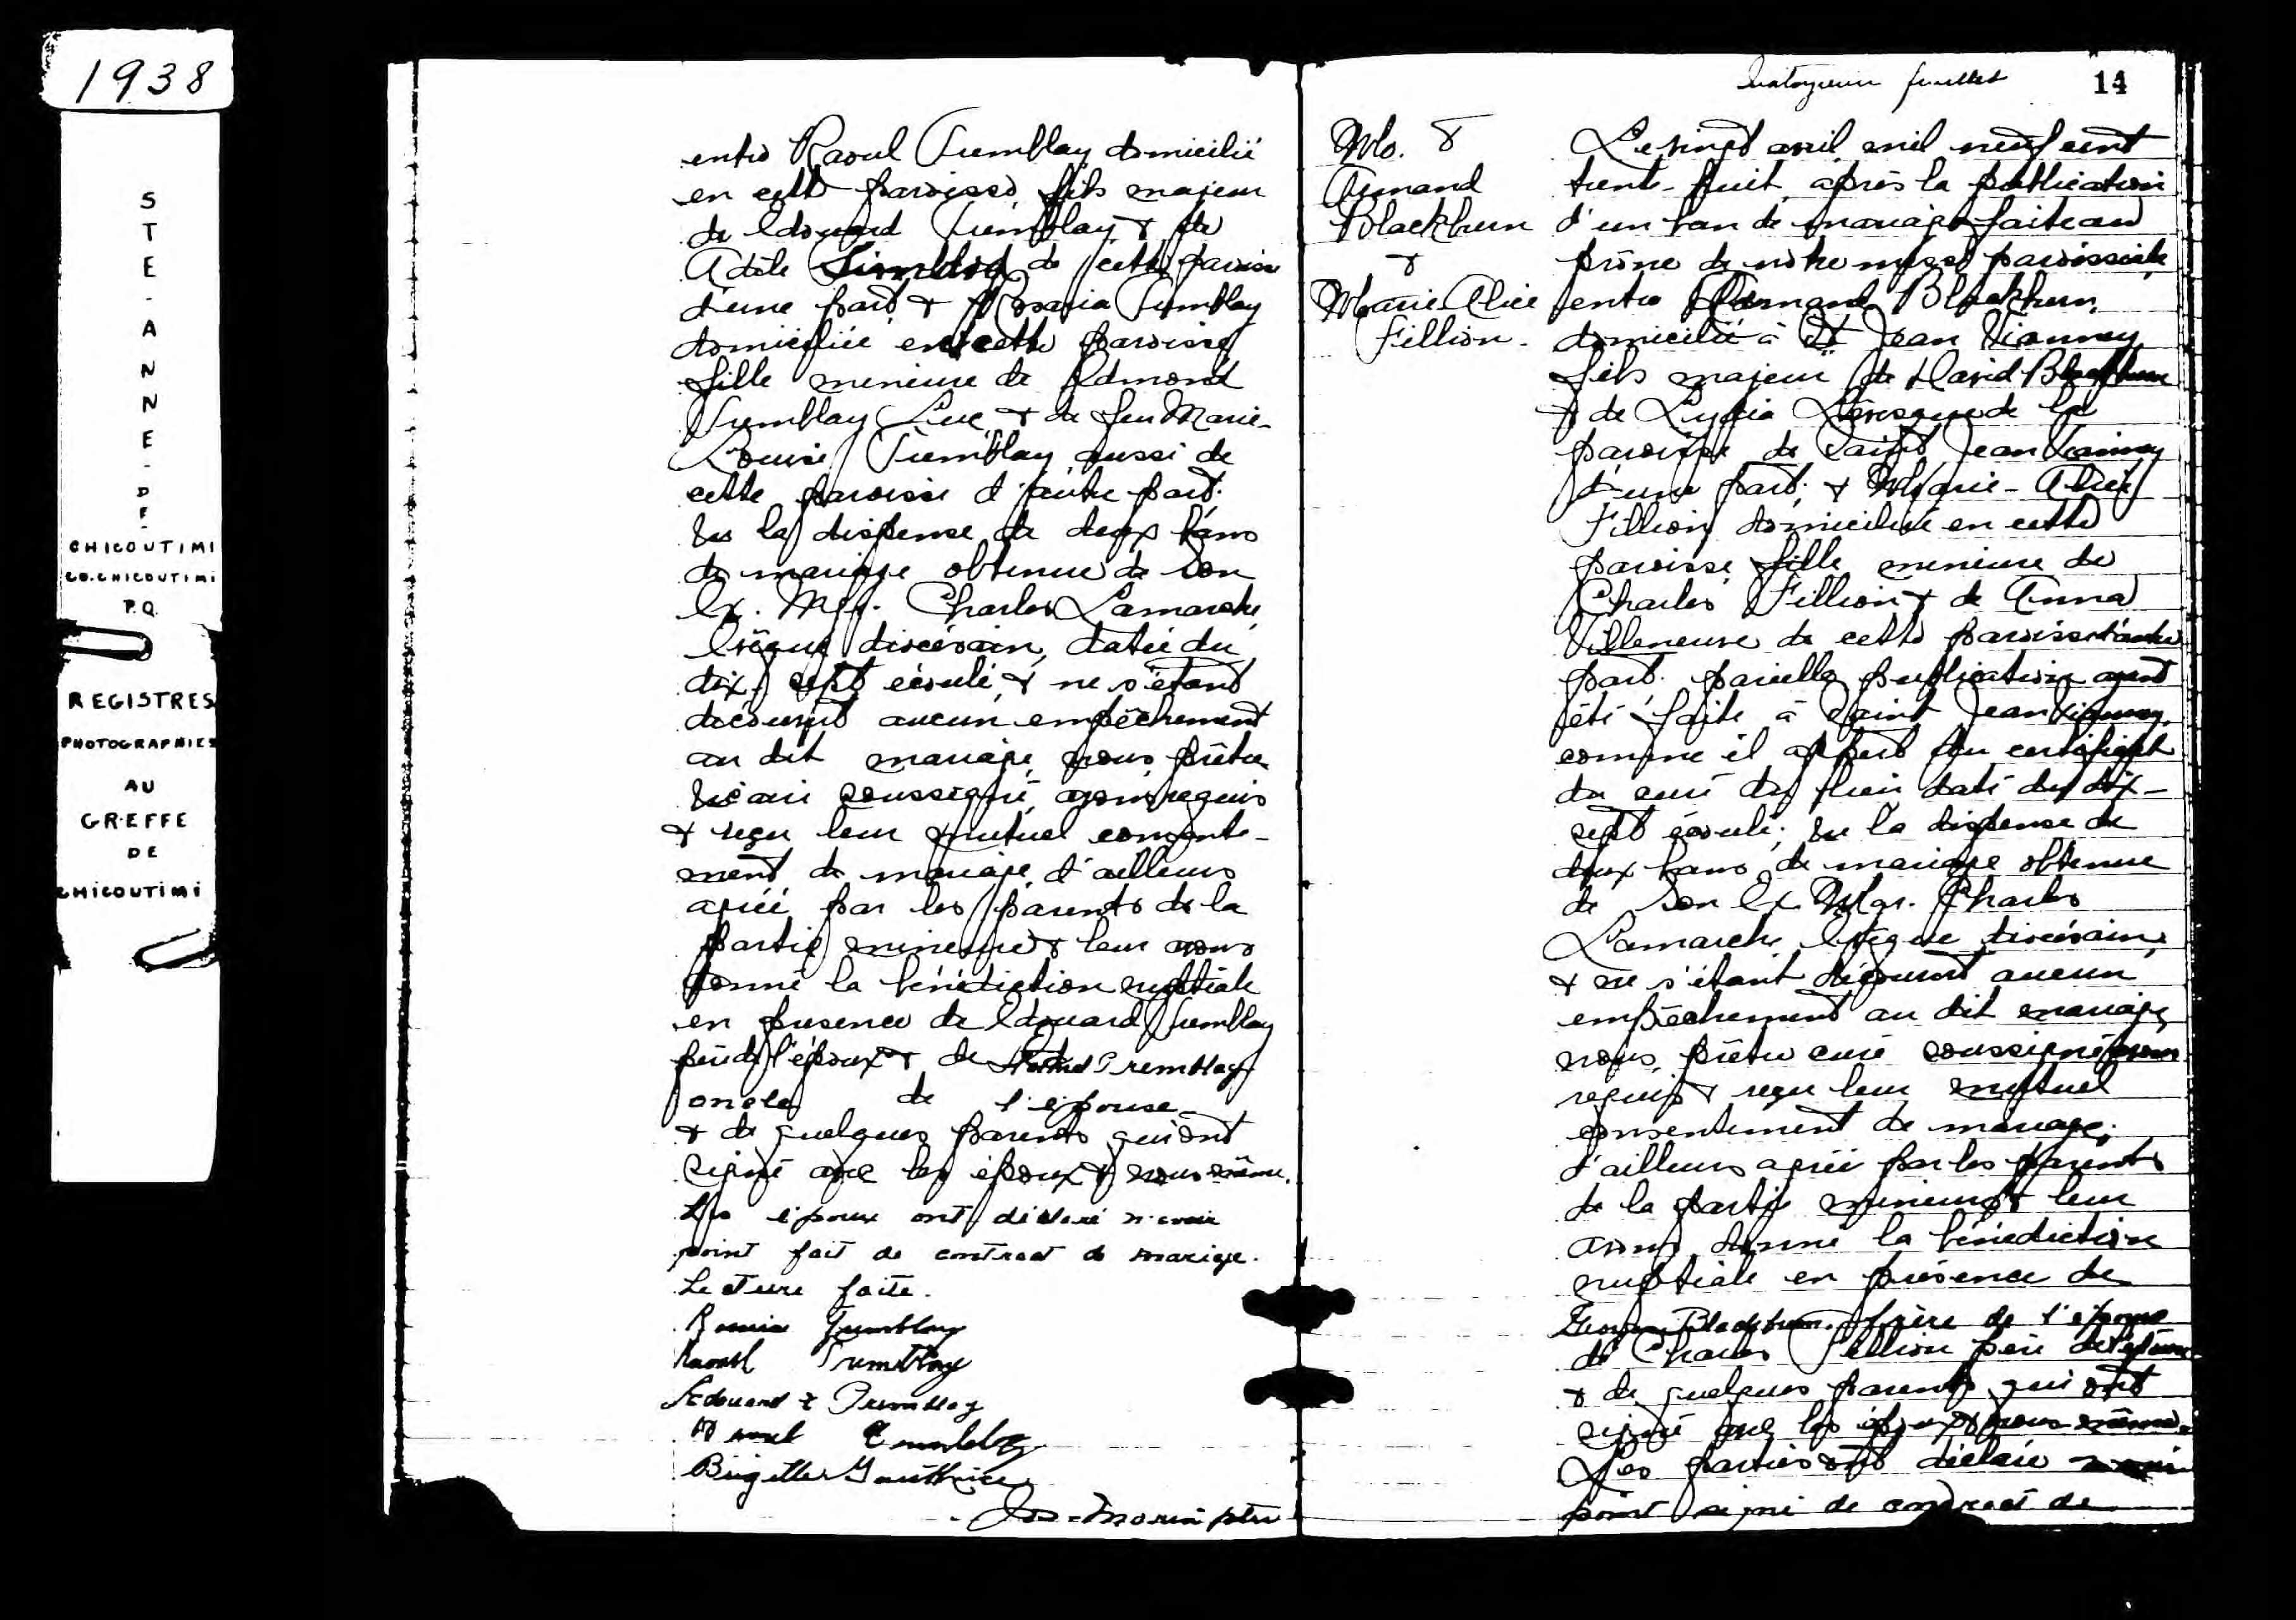 1938
STE-ANNE-DE-
CHICOUTIMI
CO. CHICOUTIMI
P.Q.
REGISTRES
PHOTOGRAPHIES
AU
GREFFE
DE
CHICOUTIMI
entre Raoul Tremblay domicilié
en cette paroisse, fils majeur
de Edouard Tremblay & de
Adèle de cette paroisse
d'une part & Rosaria Tremblay
domiciliée en cette paroisse
fille mineure de Edmond
Tremblay Luc, & de feu Marie-
Louise Tremblay aussi de
cette paroisse d'autre part.
Vu la dispense de deux bans
de mariage obtenue de Son
Ex. Mgr. Charles Lamarche,
Evêque diocésain, datée du
dix-sept écoulé, & ne s'étant
découvert aucun empêchement
au dit mariage, nous, prêtre
vicaire soussigné, avons requis
& reçu leur mutuel consente-
ment de mariage, d'ailleurs
agréé par les parents de la
partie mineure & leur avons
donné la bénédiction nuptiale
en présence de Edouard Tremblay
père de l'époux & de Tremblay
oncle de l'épouse
& de quelques parents qui ont
signé avec les époux & nous même.
Les époux ont déclaré n'avoir
point fait de contract de mariage.
Lecture faite.
Tremblay
Raoul Tremblay
Edouard Tremblay
Tremblay
Brigette Gauthier
Jos-Morin ptre
Quatorzième feuillet 14
M. 8
Armand
Blackburn
&
Marie-Alice
Fillion.
Le vingt avril mil neuf cent
trente-huit, après la publication
d'un ban de mariage faite au
prône de notre messe paroissiale,
entre Armand Blackburn,
domicilié à St Jean Vianney,
fils majeur de David Blackburn
& de Lydia Lévesque de la
paroisse de Saint Jean Vianney
d'une part; & Marie-Alice
Fillion, domiciliée en cette
paroisse, fille mineure de
Charles Fillion & de Anna
Villeneuve de cette paroisse d'autre
part. pareille publication ayant
été faite à Saint Jean Vianney,
comme il appert du certificat
du curé du lieu daté du dix-
sept écoulé; vu la dispense de
deux bans de mariage obtenue
de Son Ex. Mgr. Charles
Lamarche, Evêque diocésain,
& ne s'étant découvert aucun
empêchement au dit mariage,
nous, prêtre curé soussigné avons
requis & reçu leur mutuel
consentement de mariage,
d'ailleurs agréé par les parents
de la partie mineure & leur
avons donné la bénédiction
nuptiale en présence de
Blackburn, frère de l'époux
de Charles Fillion père de l'épouse
& de quelques parents qui ont
signé avec les époux & nous même.
Les parties ont déclaré n'avoir
point signé de contract de